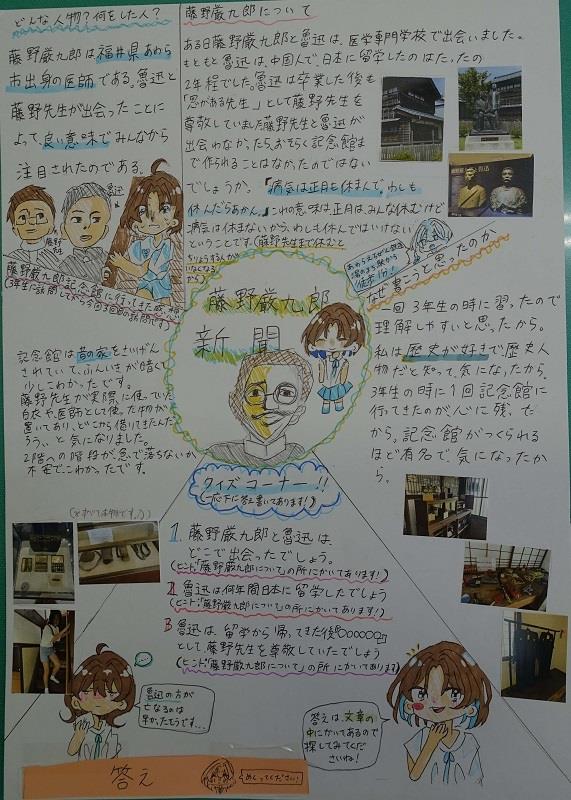 どんな人物?何をした人?
藤野厳九郎は福井県あわら
市出身の医師である。魯迅と
藤野先生が出会ったことに
よって、良い意味でみんなから
注目されたのである。
魯迅
藤野厳九郎について
ある日藤野厳九郎と魯迅は、医学専門学校で出会いました。
もともと魯迅は、中国人で、日本に留学したのはたったの
2年程でした。魯迅は卒業した後も
「恩がある先生」として藤野先生を
尊敬していました。藤野先生と魯迅が
出会わなかったら、おそらく記念館ま
で作られることはなかったのではない
でしょうか。「病気は正月も休まんで、わしも
休んだらあかん。」これの意味は、正月は、みんな休むけど
病気は休まないから、わしも休んではいけない
ということです。(藤野先生まで休むと
藤野厳九郎記念館に行ってきた感想
(3年生に訪問してから今回3回目の訪問です)
記念館は昔の家をさいげん
されていて、ふんいきが暗くて
少しこわかったです。
藤野先生が実際に使っていた
白衣や、医師として使った物が
置いてあり、どこから借りてきたんだ
ろう、と気になりました。
2階への階段が、急で落ちないか
不安でこわかったです。
藤野厳九郎
新聞
なぜ書こうと思ったのか
一回3年生の時に習ったので
理解しやすいと思ったから。
私は歴史が好きで、歴史人
物だと知って、気になったから。
3年生の時に1回記念館に
行ってきたのが心に残ったぜ
から。記念館がつくられる
ほど有名で、気になったか
ら。
クイズコーナー!!
(一番下に答え書いてあります!)
1. 藤野厳九郎と魯迅は、
どこで出会ったでしょう。
(ヒント:「藤野厳九郎について」の所にかいてあります!)
2. 魯迅は何年間日本に留学したでしょう
(ヒント:「藤野厳九郎について」の所にかいてあります!)
3 魯迅は、留学から帰ってきた後「○○○○○○○」
として藤野先生を尊敬していたでしょう
(ヒント:「藤野厳九郎について」の所にかいてあります)
魯迅の方が
亡なるのは
早かったそうです...
答えは、文章の
中にかいてあるので
探してみてくだ
さいね!
答え
めくってください!